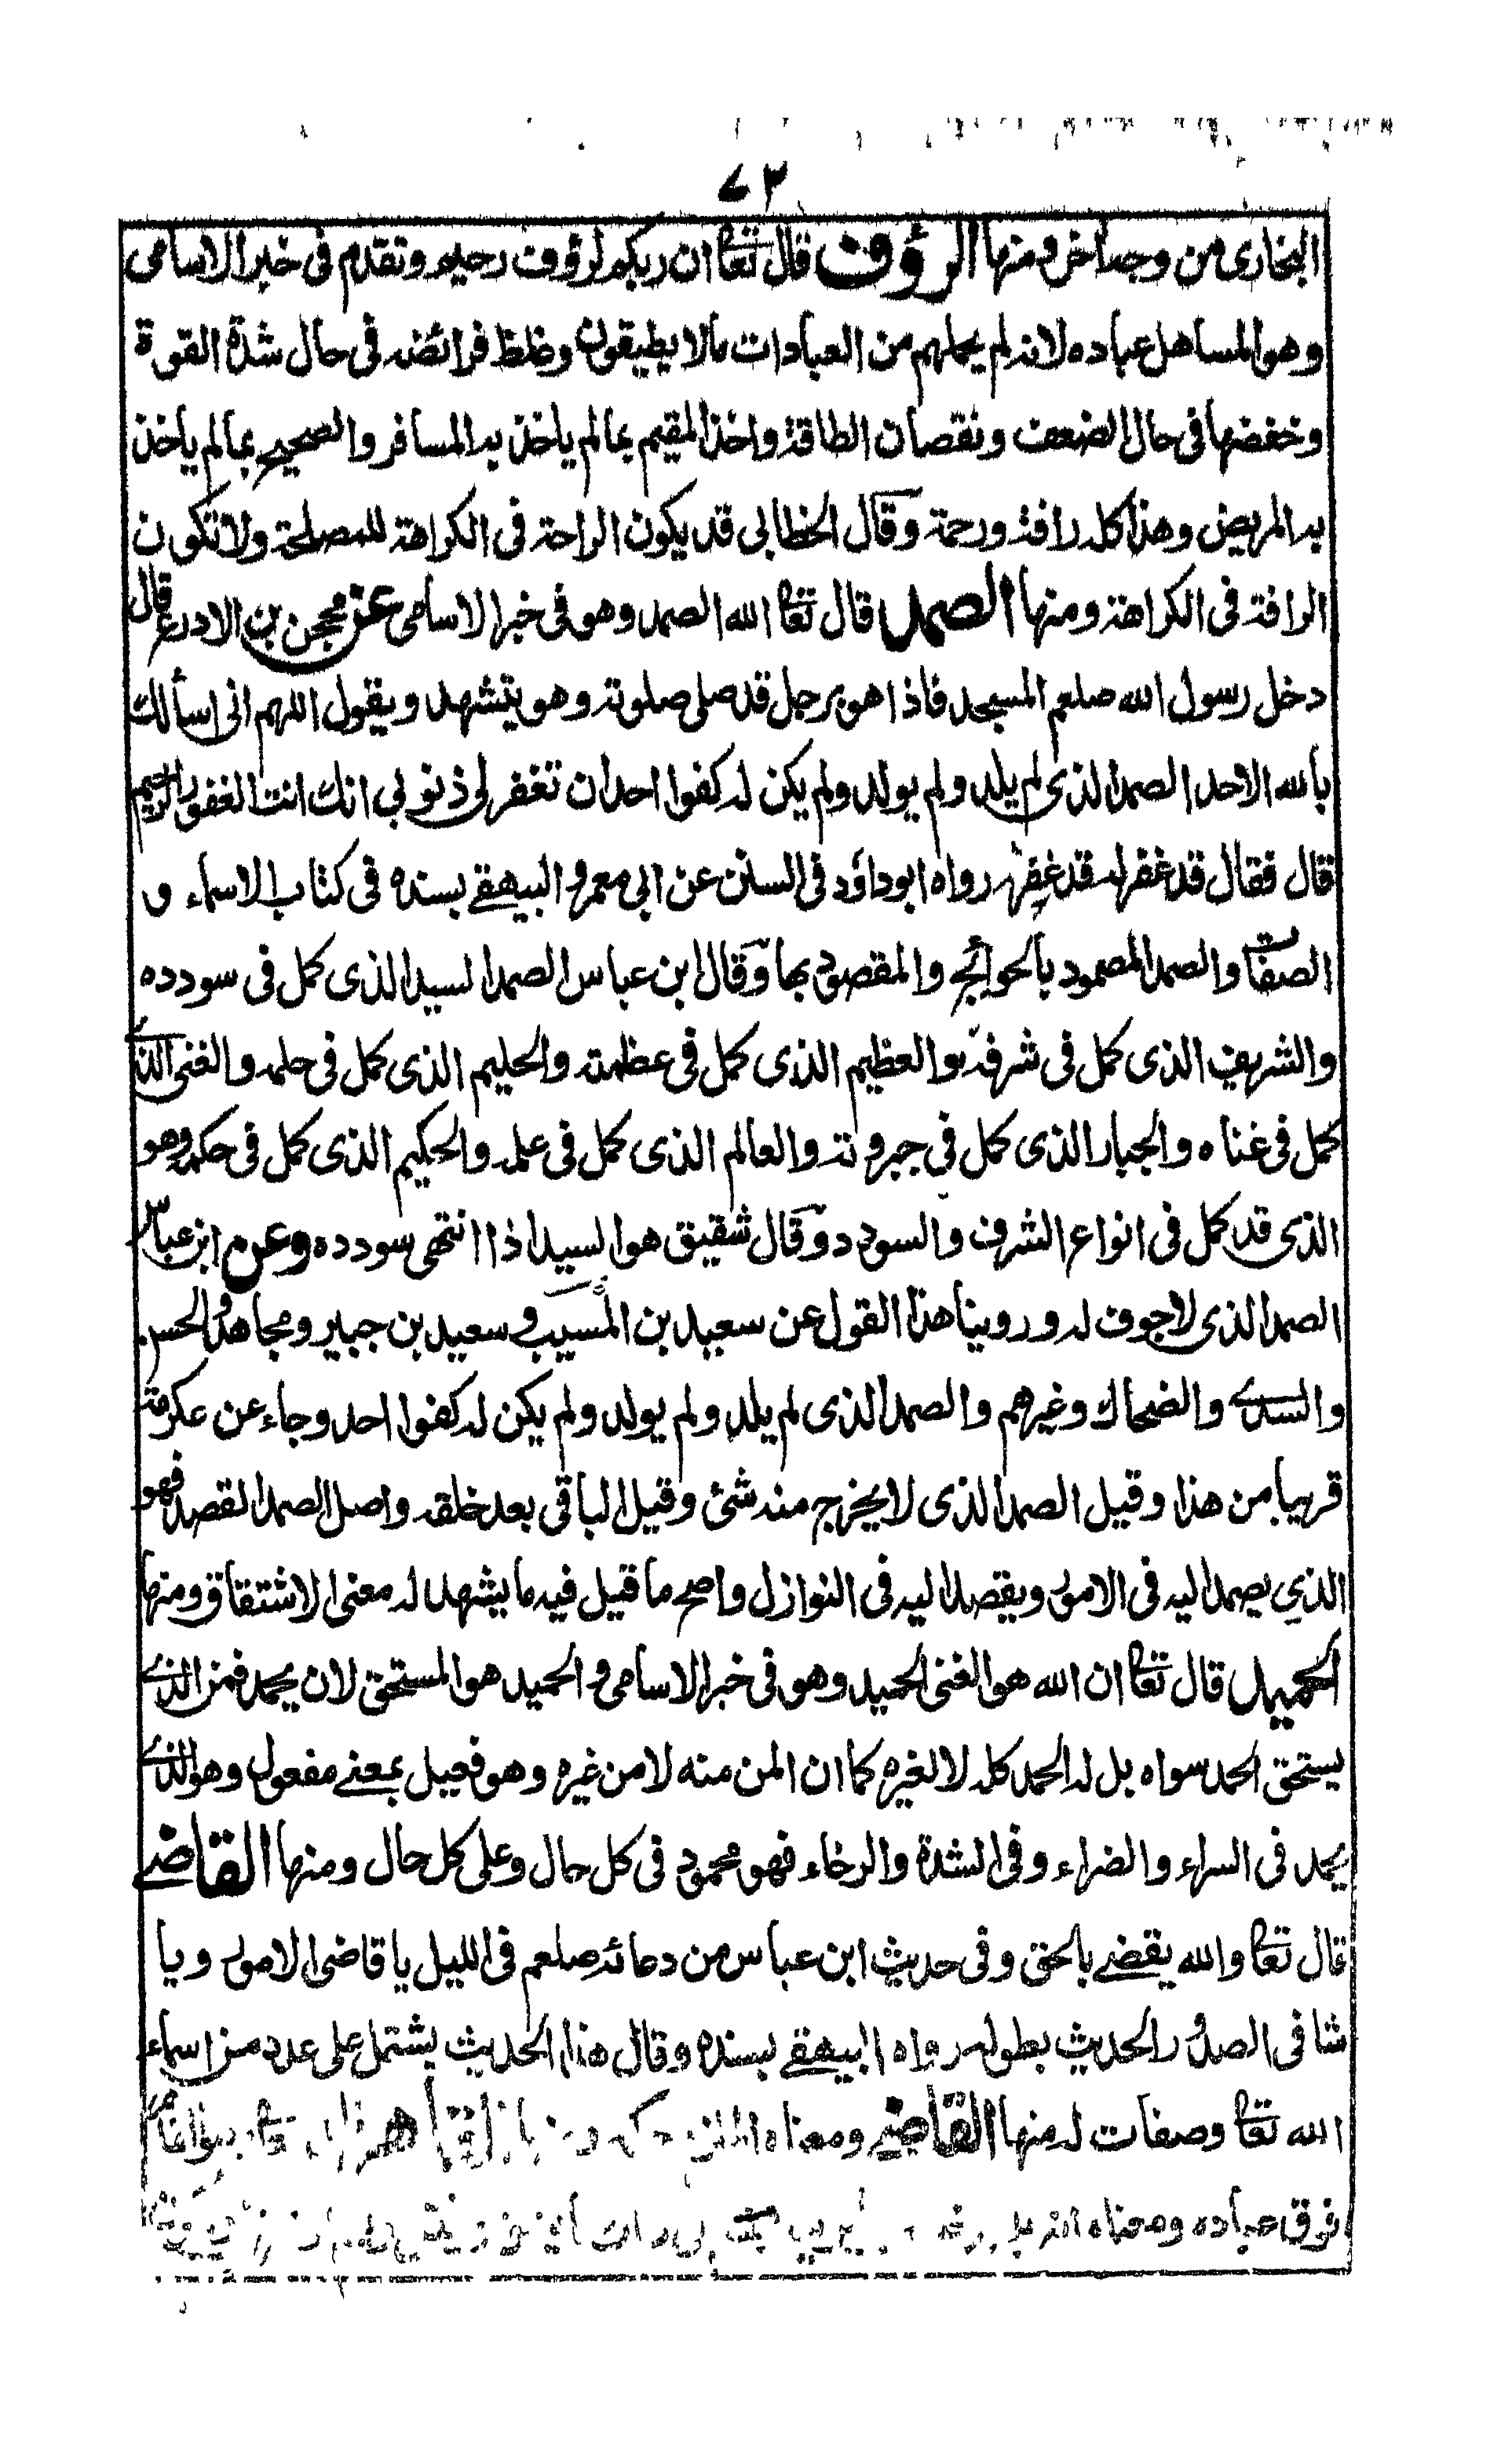 ٧٣
البخاري من وجه اخر ومنها الرؤف قال تعا ان ربكم لرؤف رحيم وتقدم فى خبر الاسامى
وهو المساهل عباده لانه لم يحملهم من العبادات مالا يطيقون وغلظ فرائضه فى حال شدة القوة
وخفضها فى حال الضعف ونقصان الطاقة واخذ المقيم بما لم ياخذ به المسافر والصحيح بما لم ياخذ
به المريض وهذا كله رافة ورحمة وقال الخطابى قد يكون الراحة فى الكراهة للمصلحة ولا تكون
الرافة فى الكراهة ومنها الصمد قال تعا الله الصمد وهو فى خبر الاسامى عن محجن بن الادرع قال
دخل رسول الله صلعم المسجد فاذا هو برجل قد صلى صلوته وهو يتشهد ويقول اللهم انى اسألك
بالله الاحد الصمد الذى لم يلد ولم يولد ولم يكن له كفوا احد ان تغفر لى ذنوبى انك انت الغفور الرحيم
قال فقال قد غفر له قد غفر له رواه ابوداؤد فى السنن عن ابى معمر و البيهقے بسنده فى كتاب الاسماء و
الصفات والصمد المصمود بالحوائج والمقصود بها وقال ابن عباس الصمد السيد الذى كمل فى سودده
والشريف الذى كمل فى شرفه والعظيم الذى كمل فى عظمته والحليم الذى كمل فى حلمه والغنى الذى
كمل فى غناه والجبار الذى كمل فى جبروته والعالم الذى كمل فى علمه والحكيم الذى كمل فى حكمه وهو
الذى قد كمل فى انواع الشرف والسودد وقال شقيق هو السيد اذا انتهى سودده وعن ابن عباس
الصمد الذى لاجوف له وروينا هذا القول عن سعيد بن المسيب و سعيد بن جبير ومجاهد والحسن
والسدے والضحاك وغيرهم والصمد الذى لم يلد ولم يولد ولم يكن له كفوا احد وجاء عن عكرمة
قريبا من هذا وقيل الصمد الذى لا يخرج منه شئ وقيل الباقى بعد خلقه واصل الصمد القصد فهو
الذي يصمد اليه فى الامور ويقصد اليه فى النوازل واصح ما قيل فيه ما يشهد له معنى الاشتقاق ومنها
الحميد قال تعا ان الله هو الغنى الحميد وهو فى خبر الاسامى و الحميد هو المستحق لان يحمد فمن الذے
يستحق الحمد سواه بل له الحمد كله لا لغيره كما ان المن منه لا من غيره وهو فعيل بمعنے مفعول وهو الذے
يحمد فى السراء والضراء وفى الشدة والرخاء فهو محمود فى كل حال وعلى كل حال ومنها القاضے
قال تعا والله يقضے بالحق وفى حديث ابن عباس من دعائه صلعم فى الليل يا قاضى الامور ويا
شافى الصدور الحديث بطوله رواه البيهقے بسنده وقال هذا الحديث يشتمل على عدد من اسماء
الله تعا وصفات له منها القاضے ومعناه
فوق عباده ومعناه